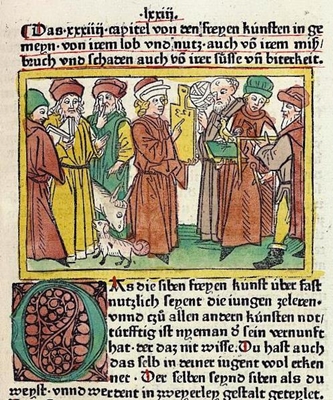 lxxiij.
Das .xxxiiij. capitel von den freyen künsten in ge
meyn. von irem lob vnd nutz. auch vō irem miß/
bruch vnd schaden auch vō irer süsse vn̄ biterkeit.
DAs die siben freyen kunst über fast
nutzlich seyent die iungen zeleren.
vnnd czů allen andern künsten not/
türfftig ist nyeman ð sein vernunfft
hat. der daz nit wisse. Du hast auch
das selb in deiner iugent wol erken
net. Der selben seynd siben als du
weyst. vnnd werdent in zweyerley gestalt geteylet.